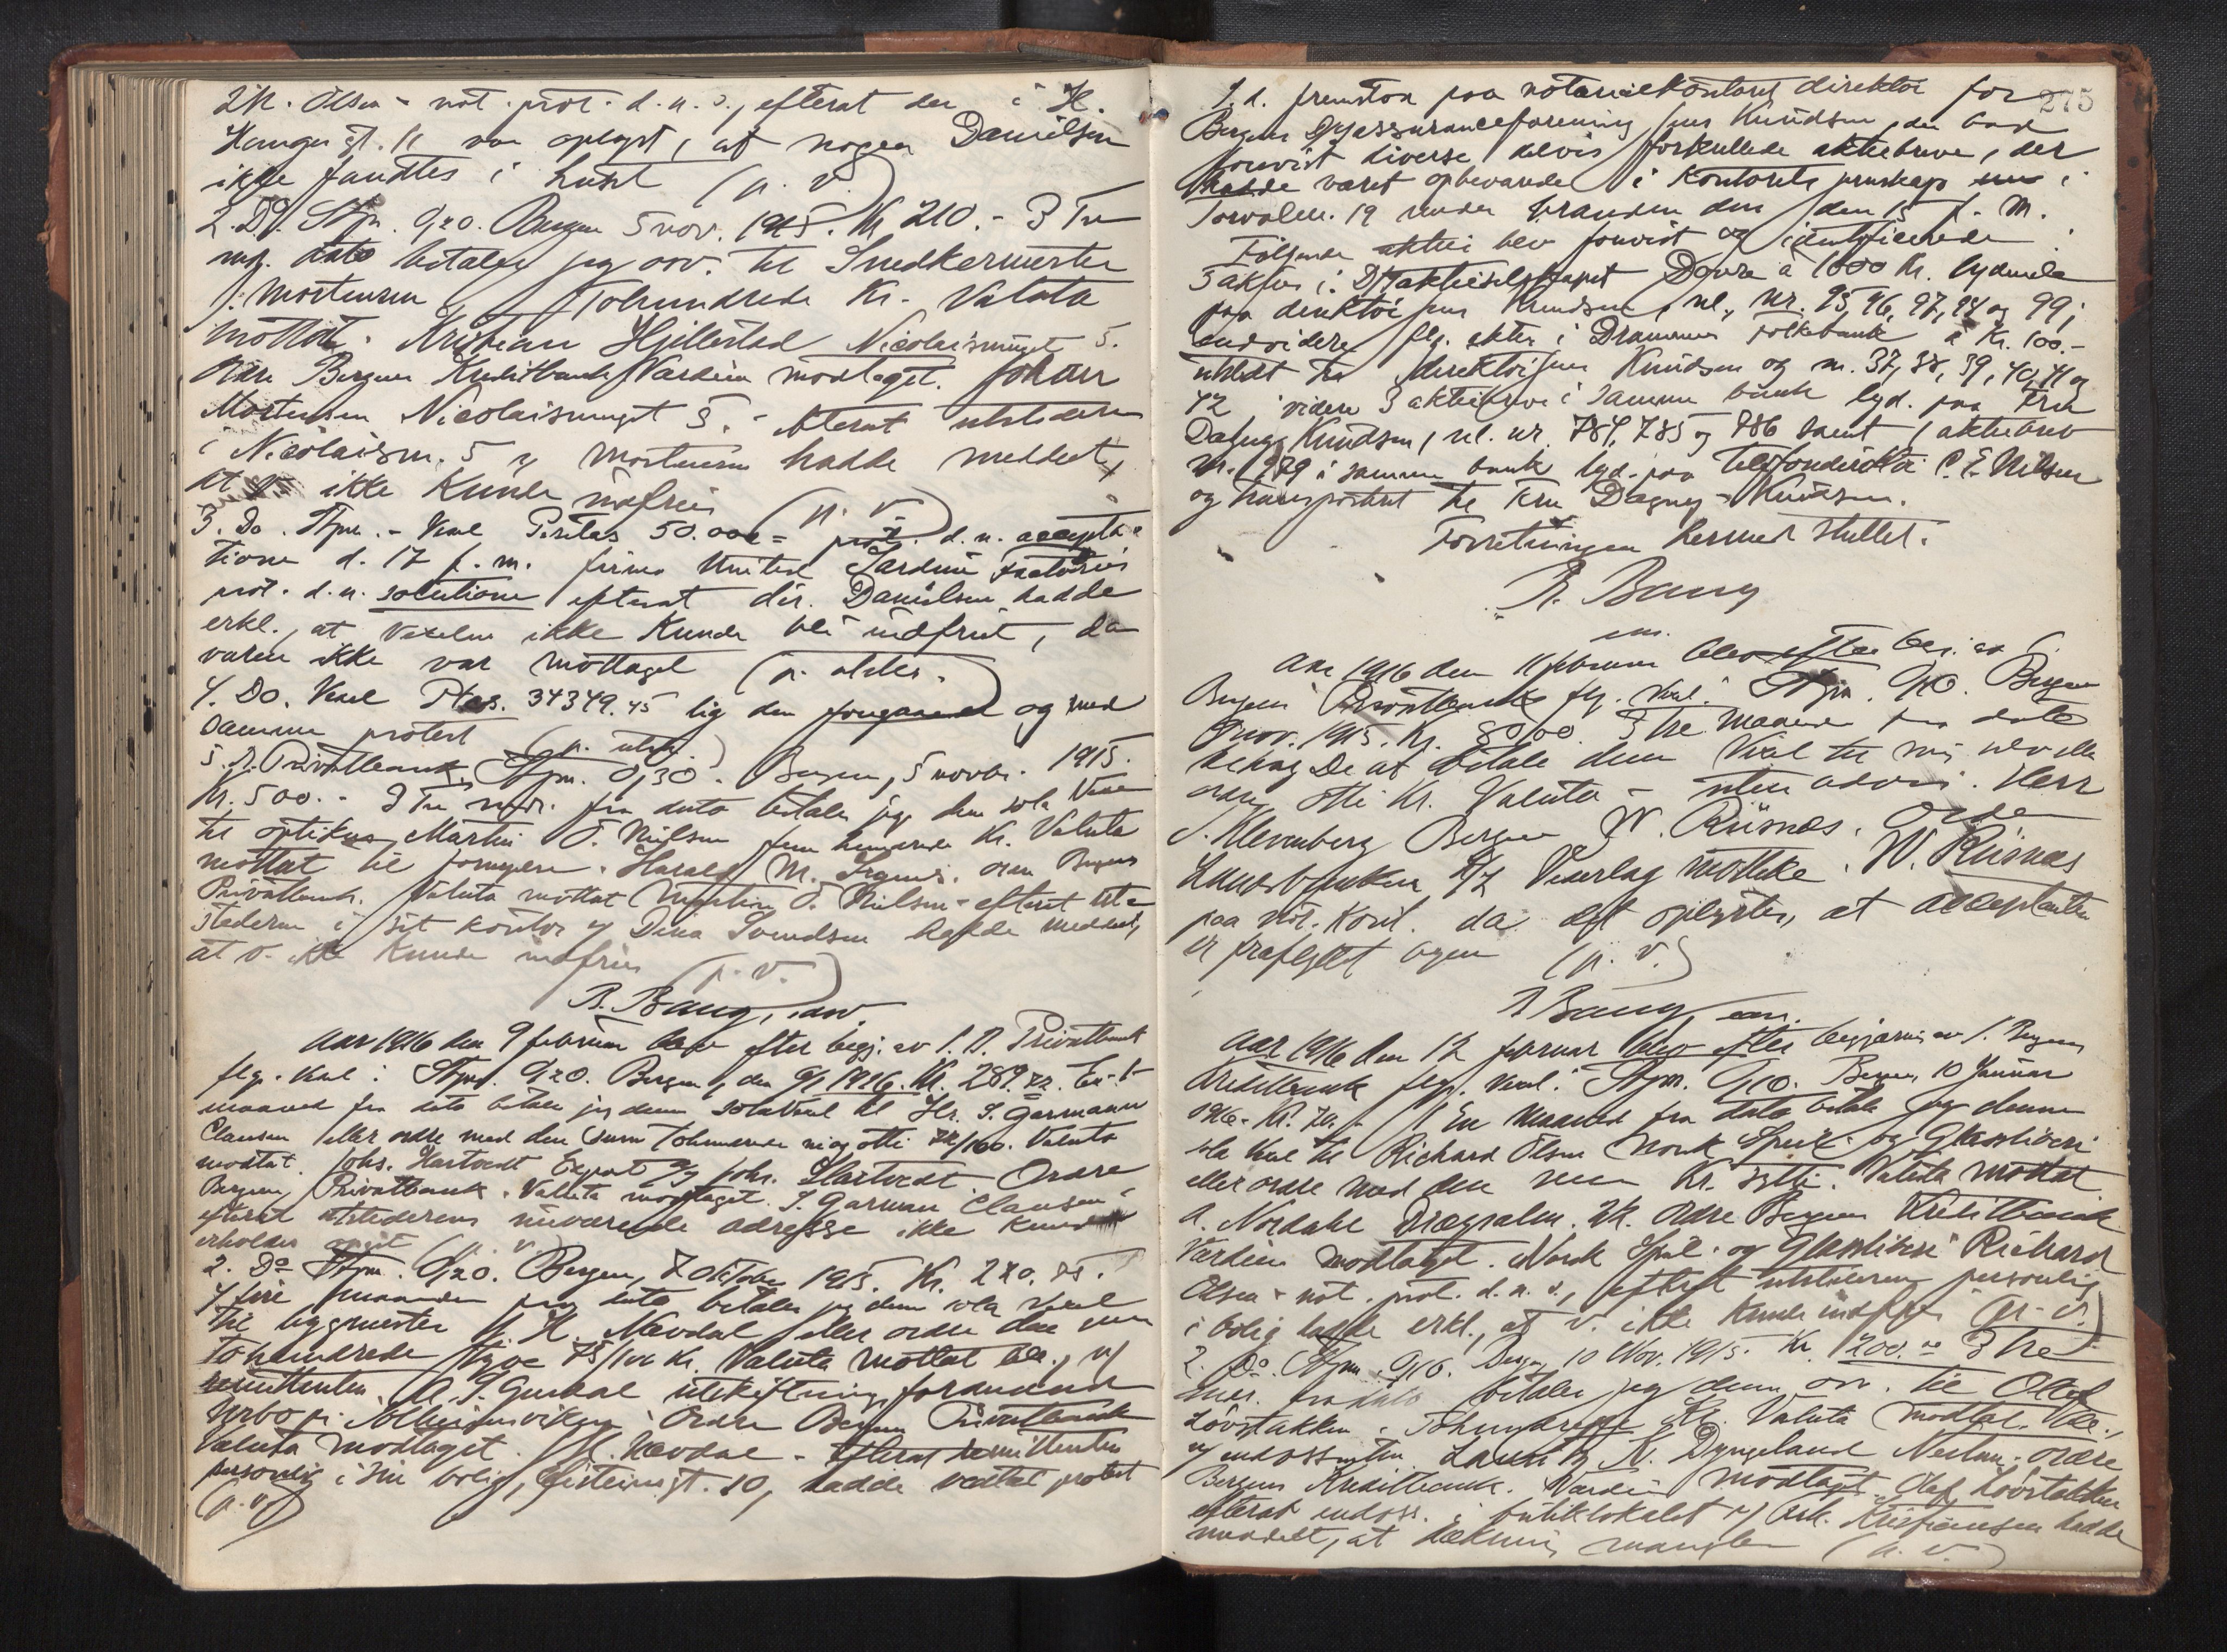 2K. Olsen - not. prot. d. n. s., efterat der i H.
Hauges gt. 11 var oplyst, at nogen Danielsen
ikke fandtes i huset (p. v.)
2. Do. Stpn. 0,20. Bergen 5 nov. 1915. Kr. 210.- 3 Tre
mdr. dato betaler jeg osv. til Snedkermester
J. Mortensen Tohundrede Kr. Valuta
mottat. Kristian Hjellestad Nicolaismuget 5.
Ordre Bergens Kreditbank Værdien modtaget. Johan
Mortensen Nicolaismuget 5. - efterat utstederen
i Nicolaism. 5 v/ Mortensen hadde meddelt,
at v. ikke kunde indfries (p. v.)
3. Do. Stpn. - Veksel Pesetas 50.000 = prot. d. n. accepta-
tione d. 17 f. m. firma United Sardine Factories
prot. d. n. solutione efterat dir. Danielsen hadde
erkl., at vekselen ikke kunde bli indfriet, da
varen ikke var mottaget (p. utsted.)
4. Do. Veksel Ptas. 34349.45 lig den foregaaende og med
samme protest (p. utst.)
5. A. Privatbank, Stpn. 0,30. Bergen, 5 novbr. 1915.
Kr. 500.- 3 Tre mdr. fra dato betaler jeg denne sola veksel
til optiker Martin O. Nielsen fem hundrede Kr. Valuta
mottat til fornyelse. Harald M. Ordre Bergens
Privatbank. Valuta mottat Martin O. Nielsen - efterat ut-
stederen i sit kontor v/ Dina Svendsen hadde meddelt,
at v. ikke kunde indfries (p. v.)
R. Bang, cav.
Aar 1916 den 9 februar blev efter begj. av 1. A. Privatbank
flg. veksel: Stpn. 0,20. Bergen, den 9/1 1916. Kr. 289.72. En 1
maaned fra dato betaler jeg denne solaveksel til Hr. S. Garmann
Clausen eller ordre med den sum tohundrede niogotti 72/100. Valuta
modtat. Johs. Hartvedt Export p/p Johs. Hartvedt Ordre
Bergens Privatbank. Valuta modtaget. S. Garman Clausen -
efterat utstederens nuværende adresse ikke kunde
erholdes opgit (p. v.)
2. Do Stpn. 0,20. Bergen, 7 oktober 1915. Kr. 220.75.
4 fire maaneder fra dato betaler jeg denne sola veksel
til bygmester H. H. Nævdal eller ordre den sum
Tohundrede tyve 75/100 Kr. Valuta mottat bet. v/
remittenten. A. S. utskiftningsformand
Ordre Bergens Privatbank
Valuta modtaget. H. Nævdal - Efterat remittenten
personlig i sin bolig, gt. 10, hadde vedtat protest
(p. v.)
275
S. d. fremstod paa notarialkontoret direktør for
Bergens Dyrassuranceforening Jens Knudsen, der bad
forevist diverse delvis forkullede aktiebreve, der
hadde været opbevarede i kontorets pengeskap i
Torvalm. 19 under branden den 15 f. M.
Følgende aktier blev forevist og identificerede:
5 aktier i D/S aktieselskapet Dovre à 1000 Kr. lydende
paa direktør Jens Knudsen, nl. nr. 95, 96, 97, 98 og 99;
endvidere flg. aktier i Drammens Folkebank à Kr. 100.-
utstedt til direktør Jens Knudsen og nr. 37, 38, 39, 40, 41 og
42, videre 3 aktiebreve i samme bank lyd. paa Fru
Dagny Knudsen, nl. nr. 784, 785 og 786 samt 1 aktiebrev
nr. 979 i samme bank lyd. paa Telefondirektør C. E. Nilsen
og transportert til Fru Dagny Knudsen.
Forretningen hermed sluttet.
R. Bang
cav.
Aar 1916 den 11 februar blev efter beg. av 1.
Bergens Privatbank flg. veksel: Stpn. 0,10. Bergen
nov. 1915. Kr. 80.00. 3 tre maaneder fra dato
behag De at betale denne veksel til mig selv eller
ordre otti Kr. Valuta - uten advis. Herr
J. Klevenberg Bergen W. Riisnæs. Ordre
Landsbanken A/S Vederlag mottatt. W. Riisnæs
paa not. kont. da det oplystes, at acceptanten
er fraflyttet byen (p. v.)
R Bang cav.
Aar 1916 den 12 februar blev efter begjæring av 1. Bergens
Kreditbank flg. veksel: Stpn. 0,10. Bergen, 10 Januar
1916. Kr. 70.- 1 En Maaned fra dato betaler jeg denne
sola veksel til Richard Olsen Norsk Speil- og Glassliberi
eller ordre med den sum Kr. sytti. Valuta mottat
A. Nordahl Dregsalm. 2K. Ordre Bergens Kreditbank
Værdien modtaget. Norsk Speil- og Glassliberi Richard
Olsen - not. prot. d. n. s., efterat utstederen personlig
i bolig hadde erkl., at v. ikke kunde indfries (p. v.)
2. Do. Stpn. 0,10. Bergen 10 Nov. 1915. Kr. 200.00 3 tre
mdr. fra dato betaler jeg denne osv. til Olaf
Løvstakken - Tohundrede Kr. Valuta modtat. Bet.
v/ endossenten. Lauritz K. Dyngeland Nestun. Ordre
Bergens Kreditbank. Værdien modtaget. Olaf Løvstakken
efterat endoss. i butiklokalet v/ Kristiansen hadde
meddelt, at dækning mangler (p. v.)